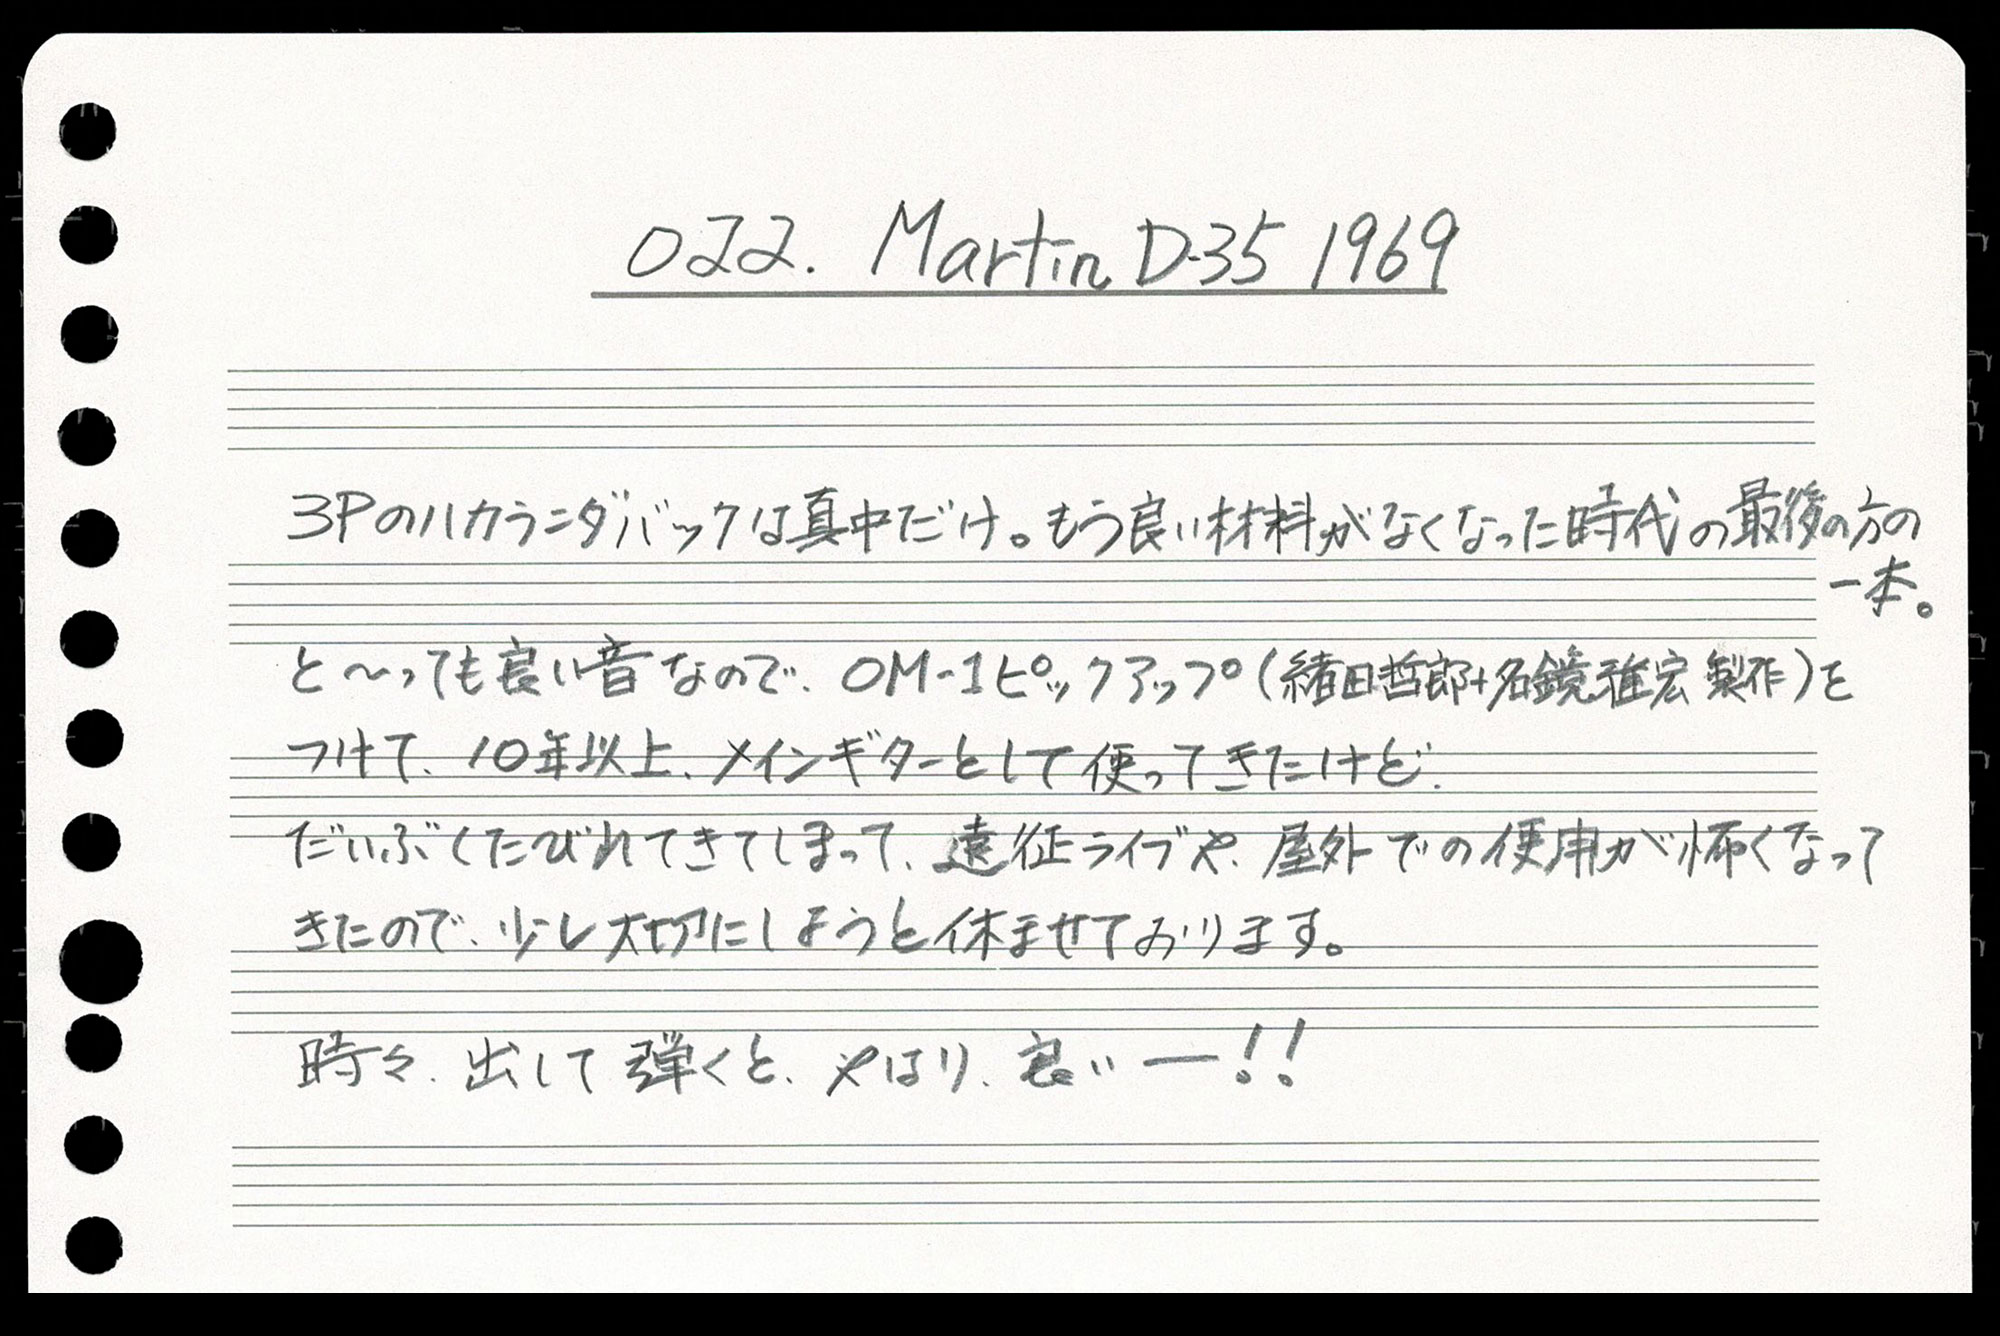 022. Martin D-35 1969
3Pのハカランダバックは真中だけ。もう良い材料がなくなった時代の最後の方の
一本。
と〜っても良い音なので、OM-1ピックアップ(緒日哲郎+名鏡雅宏製作)を
つけて、10年以上、メインギターとして使ってきたけど、
だいぶくたびれてきてしまって、遠征ライブや、屋外での使用が怖くなって
きたので、少し大切にしようと休ませております。
時々、出して弾くと、やはり、良いー!!